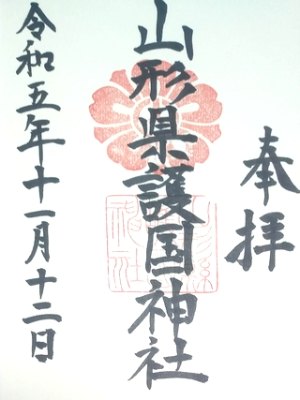 奉拝
山形県護国神社
令和五年十一月十二日